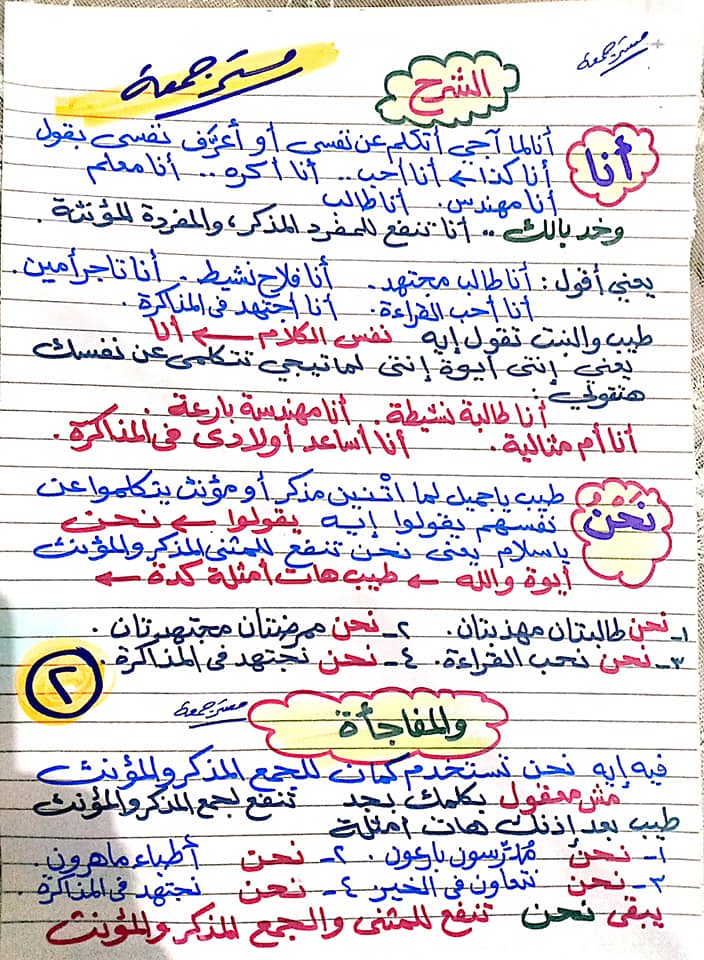 مستر جمعة
مستر جمعة
الشرح
أنا
أنا لما آجي أتكلم عن نفسي أو أعرّف نفسي بقول
أنا كذا ← أنا أحب .. أنا أكره .. أنا معلم
أنا مهندس. أنا طالب
وخد بالك .. أنا تنفع للمفرد المذكر، والمفردة المؤنثة.
يعني أقول: أنا طالب مجتهد. أنا فلاح نشيط. أنا تاجر أمين.
أنا أحب القراءة. أنا أجتهد فى المذاكرة.
طيب والبنت تقول إيه نفس الكلام ← أنا
يعنى إنتى أيوة إنتى لما تيجي تتكلمى عن نفسك
هتقولي:
أنا طالبة نشيطة. أنا مهندسة بارعة.
أنا أم مثالية. أنا أساعد أولادى فى المذاكرة.
نحن
طيب ياجميل لما اثنين مذكر أو مؤنث يتكلموا عن
نفسهم يقولوا إيه يقولوا ← نحن
ياسلام يعنى نحن تنفع للمثنى المذكر والمؤنث
أيوة والله ← طيب هات أمثلة كدة ←
١- نحن طالبتان مهذبتان. ٢- نحن ممرضتان مجتهدتان.
٣- نحن نحب القراءة. ٤- نحن نجتهد فى المذاكرة.
٢
مستر جمعة
والمفاجأة
فيه إيه نحن تستخدم كمان للجمع المذكر والمؤنث
مش معقول بكلمك بجد تنفع لجمع المذكر والمؤنث
طيب بعد اذنك هات أمثلة
١- نحن مُدرّسون بارعون. ٢- نحن أطباء ماهرون.
٣- نحن نتعاون فى الخير ٤- نحن نجتهد فى المذاكرة.
يبقى نحن تنفع للمثنى والجمع المذكر والمؤنث